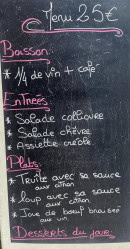 Menu 25€
Boisson
* 1/4 de vin + café
Entrées
* Salade collioure
* Salade chèvre
* Assiette créole
Plats
* Truite avec sa sauce
au citron
* loup avec sa sauce
aux citron
* Joue de bœuf braisée
au vin
Desserts du jour